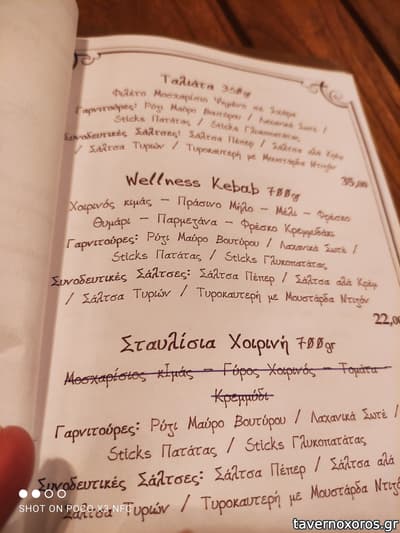 Ταλιάτα 350gr
Φιλέτο Μοσχαρίσιο Ψημένο σε Σχάρα
Γαρνιτούρες: Ρύζι Μαύρο Βουτύρου / Λαχανικά Σωτέ /
Sticks Πατάτας / Sticks Γλυκοπατάτας
Συνοδευτικές Σάλτσες: Σάλτσα Πέπερ / Σάλτσα αλά Κρέμ
/ Σάλτσα Τυριών / Τυροκαυτερή με Μουστάρδα Ντιζόν
35,00
Wellness Kebab 700gr
Χοιρινός κιμάς – Πράσινο Μήλο – Μέλι – Φρέσκο
Θυμάρι – Παρμεζάνα – Φρέσκο Κρεμμυδάκι
Γαρνιτούρες: Ρύζι Μαύρο Βουτύρου / Λαχανικά Σωτέ /
Sticks Πατάτας / Sticks Γλυκοπατάτας
Συνοδευτικές Σάλτσες: Σάλτσα Πέπερ / Σάλτσα αλά Κρέμ
/ Σάλτσα Τυριών / Τυροκαυτερή με Μουστάρδα Ντιζόν
22,00
Σταυλίσια Χοιρινή 700gr
Μοσχαρίσιος κιμάς – Γύρος Χοιρινός – Τομάτα –
Κρεμμύδι
Γαρνιτούρες: Ρύζι Μαύρο Βουτύρου / Λαχανικά Σωτέ /
Sticks Πατάτας / Sticks Γλυκοπατάτας
Συνοδευτικές Σάλτσες: Σάλτσα Πέπερ / Σάλτσα αλά
Σάλτσα Τυριών / Τυροκαυτερή με Μουστάρδα Ντιζόν
SHOT ON POCO X3 NFC
tavernoxoros.gr